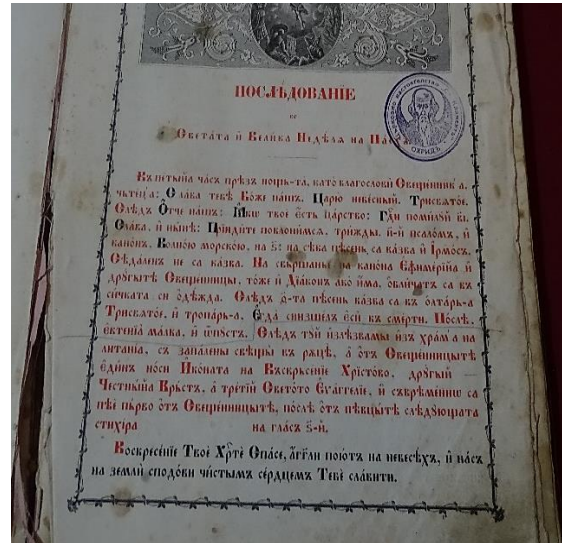 ПОСЛѢДОВАНІЕ
Светата и Велика Недѣлѧ на
Въ петыйа часъ прѣзъ нощь-та, като благослови Свещенник-а,
чьтец-а: Слава тебѣ Боже нашъ. Царю небесный. Трисвѧтое.
Слѣдъ О҆тче нашъ: Ꙗ҆кѡ твое е҆сть царство: Гдⷭ҇и помилуй в҃і.
Слава, и нынѣ: Прїидите поклонимсѧ. трижды.
канонъ. Волною морскою, на ѕ҃: на сѣка пѣсень са казва и І҆рмосъ.
Сѣдаленъ не са казва. На свършванье на канона Ефимерїйа и
другытѣ Свещенницы, тоже и Дїаконъ ако има, облачатъ са въ
сичката си одѣжда. Слѣдъ пѣсень казва са въ олтарь-а
Трисвѧтое, и тропарь-а. Е҆гда снизшелъ е҆си къ смерти. Послѣ,
ектенїа малка, и ѿпустъ. Слѣдъ туй излѣзвамы изъ храм-а на
литанїа, съ запалены свѣщы въ рѫцѣ, а отъ Свещенницытѣ
единъ носи Икѡната на Въскрьсенїе Хрїстово, другый
Честныйа Крьстъ, а третїй Светото Еѵⷢ҇аггелїе, и съврѣменнѡ са
пѣе първо отъ Свещенницытѣ, послѣ отъ пѣвцытѣ слѣдѹющата
стихїра на гласъ ѕ҃-й.
Воскресенїе Твое Хрⷭ҇те Спасе, а҆гг҃ли поютъ на небесѣхъ, и насъ
на земли сподоби чистымъ сердцемъ Тебе славити.
ОХРИДЪ